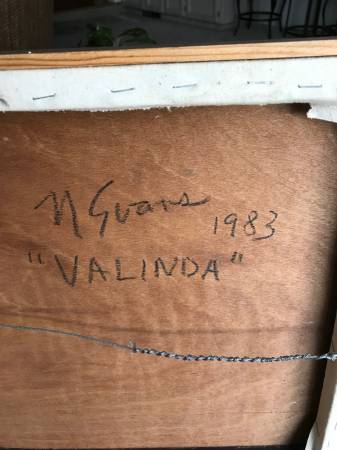 N Evans 1983
"VALINDA"